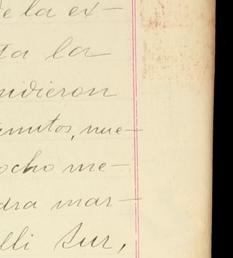 de la ex-
ta la
nidieron
minutos, nue-
ocho me-
dra mar-
elli sur,